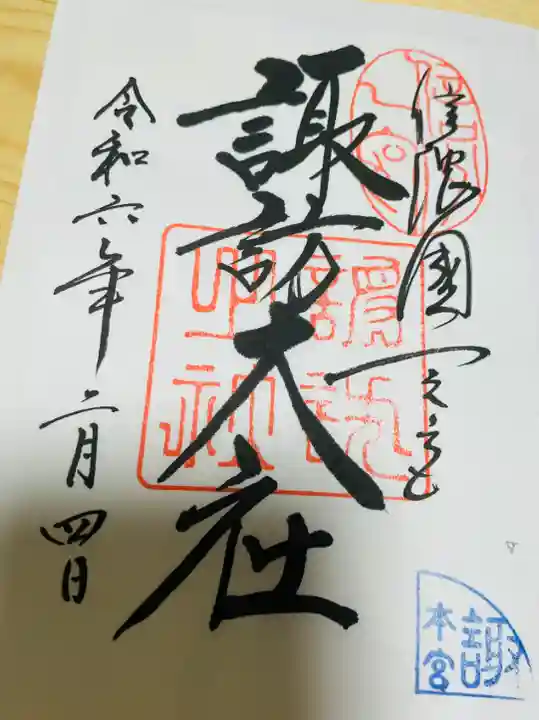 信濃國一之宮
諏訪大社
令和六年二月四日
諏
本宮